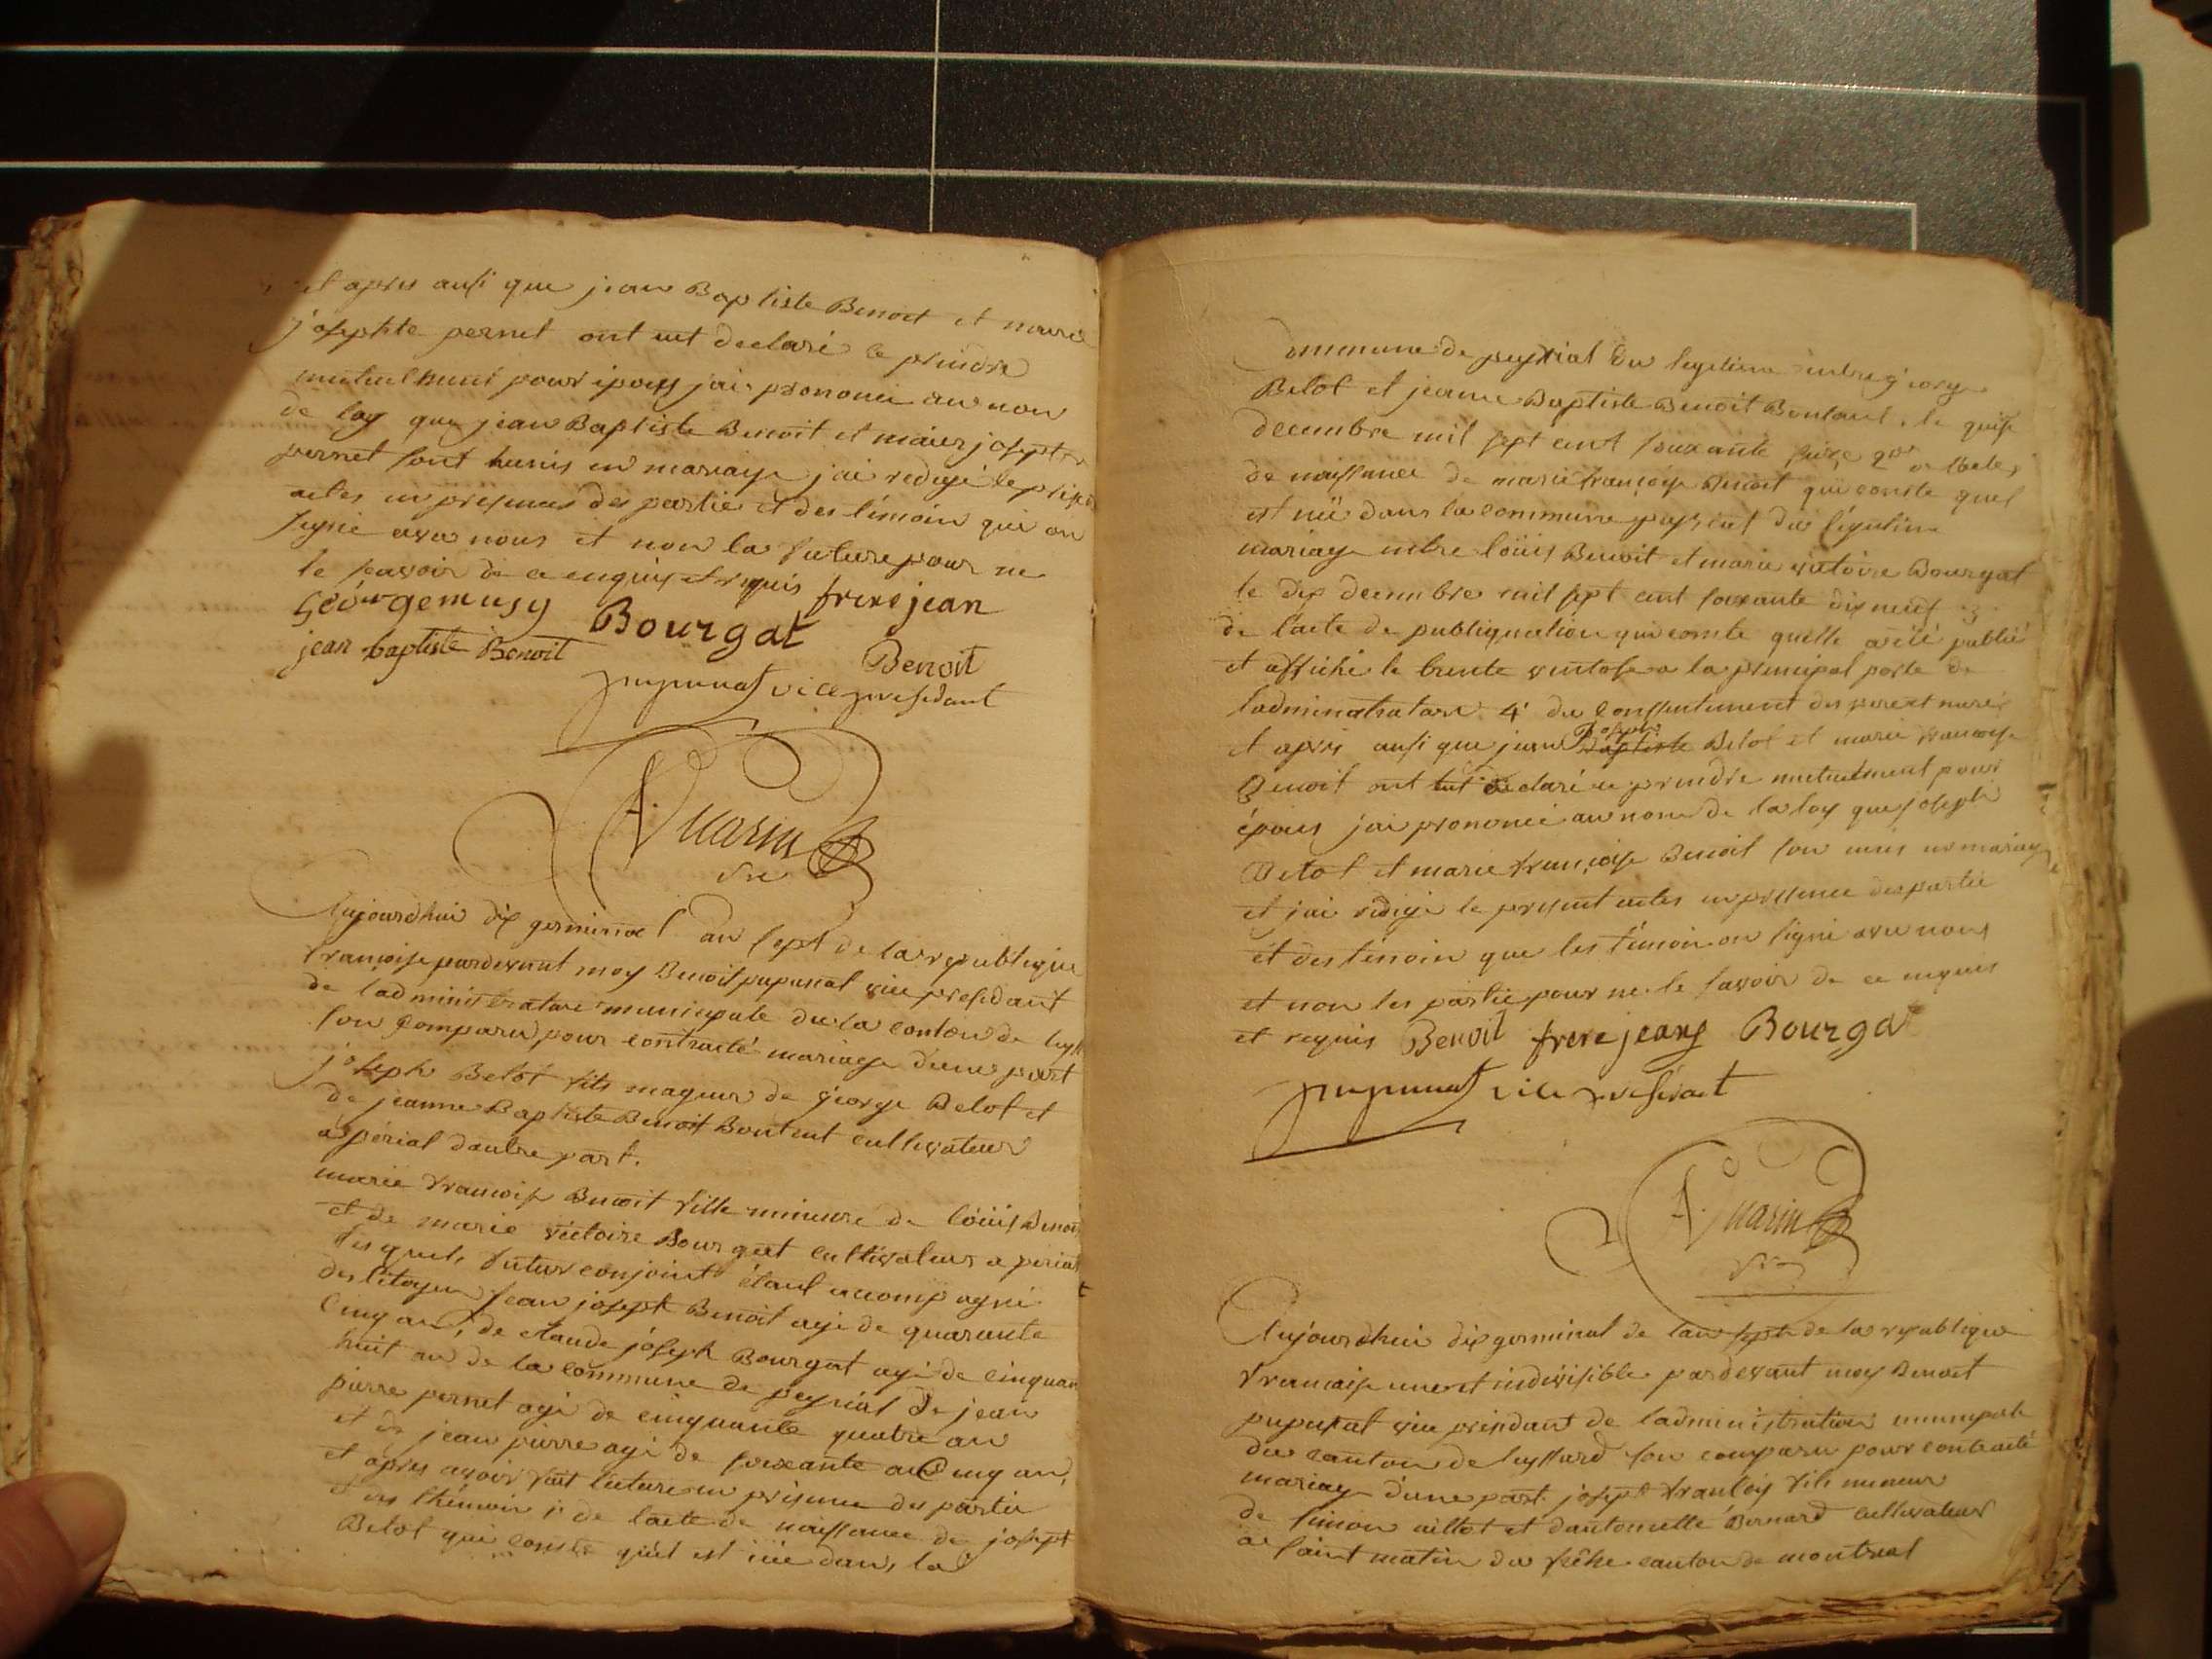 et apres ausi que jean Baptiste Benoit et marie
josephte pernet ont ut declaré ce prindre
mutuelment pour époux jai prononcé au nom
de loy que jean Baptiste Benoit et marie josepte
pernet sont hunis en mariage jai redigé le present
actes en presences des partie et des témoin qui on
signé avec nous et non la future pour ne
le scavoir de ce enquis et requis frere jean
George musy Bourgat
jean baptiste Benoit Benoit
pupunat vice presidant
A. Vuarin
Sre
Aujourdhui dix germinal an sept de la republique
francoise pardevant moy Benoit pupunat vice presidant
de ladministrature municipale du la canton de leyss
son comparu pour contracté mariage dune part
joseph Belot fils mageur de george Belot et
de jeanne Baptiste Benoit Bontent cultivateur
a périal dautre part.
marie francoise Benoit fille mineure de loüis Benoit
et de marie victoire Bourgat cultivateur a periat
lesquels futur conjoint étant acompagné
des citoyen jean joseph Benoit agé de quarante
cinq an, de claude joseph Bourgat agé de cinquan
huit an de la commune de peyriat de jean
pierre pernet agé de cinquante quatre an
et de jean pierre agé de soixante cinq an,
et apres avoir fait lecture en presence des partie
et des thémoin 1º de lacte de naissance de josept
Belot qui conste quil est née dans la
Commune de peyriat du legitime entre george
Belot et jeanne Baptiste Benoit Bontant. le quise
decembre mil sept cent soixante seize 2º
de naissance de marie françoise Benoit qui conste quel
est nüe dans la commune peyriat du légitime
mariage entre loüis Benoit et marie victoire Bourgat
le dix decembre mil sept cent soixante dix neuf 3º
de lacte de publiquation qui conste quelle a été publié
et affiché le trente ventose a la principal porte de
ladminatrature 4º du consentement des pere et mere
et apris ausi que jean Joseph Baptiste Belot et marie francoise
Benoit ont tut declaré ce prendre mutuelment pour
épous jai prononcé au nom de la loy que joseph
Belot et marie françoise Benoit son unis en mariage
et jai redigé le present actes en presence des partie
et des témoin que les témoin on signé avec nous
et non les partie pour ne le savoir de ce enquis
et requis Benoit frere jean Bourgat
pupunat vice president
A. Vuarin
Sre
Aujourdhui dix germinal de lan sept de la republique
francaise une et indivisible pardevant moy Benoit
pupunat vice presidant de ladministration municipale
du canton de leyssard son comparu pour contracté
mariage dune part. josept francois fils mineur
de simon aillot et dantoinette Bernard cultivateur
a saint matin du frêne canton de montreal